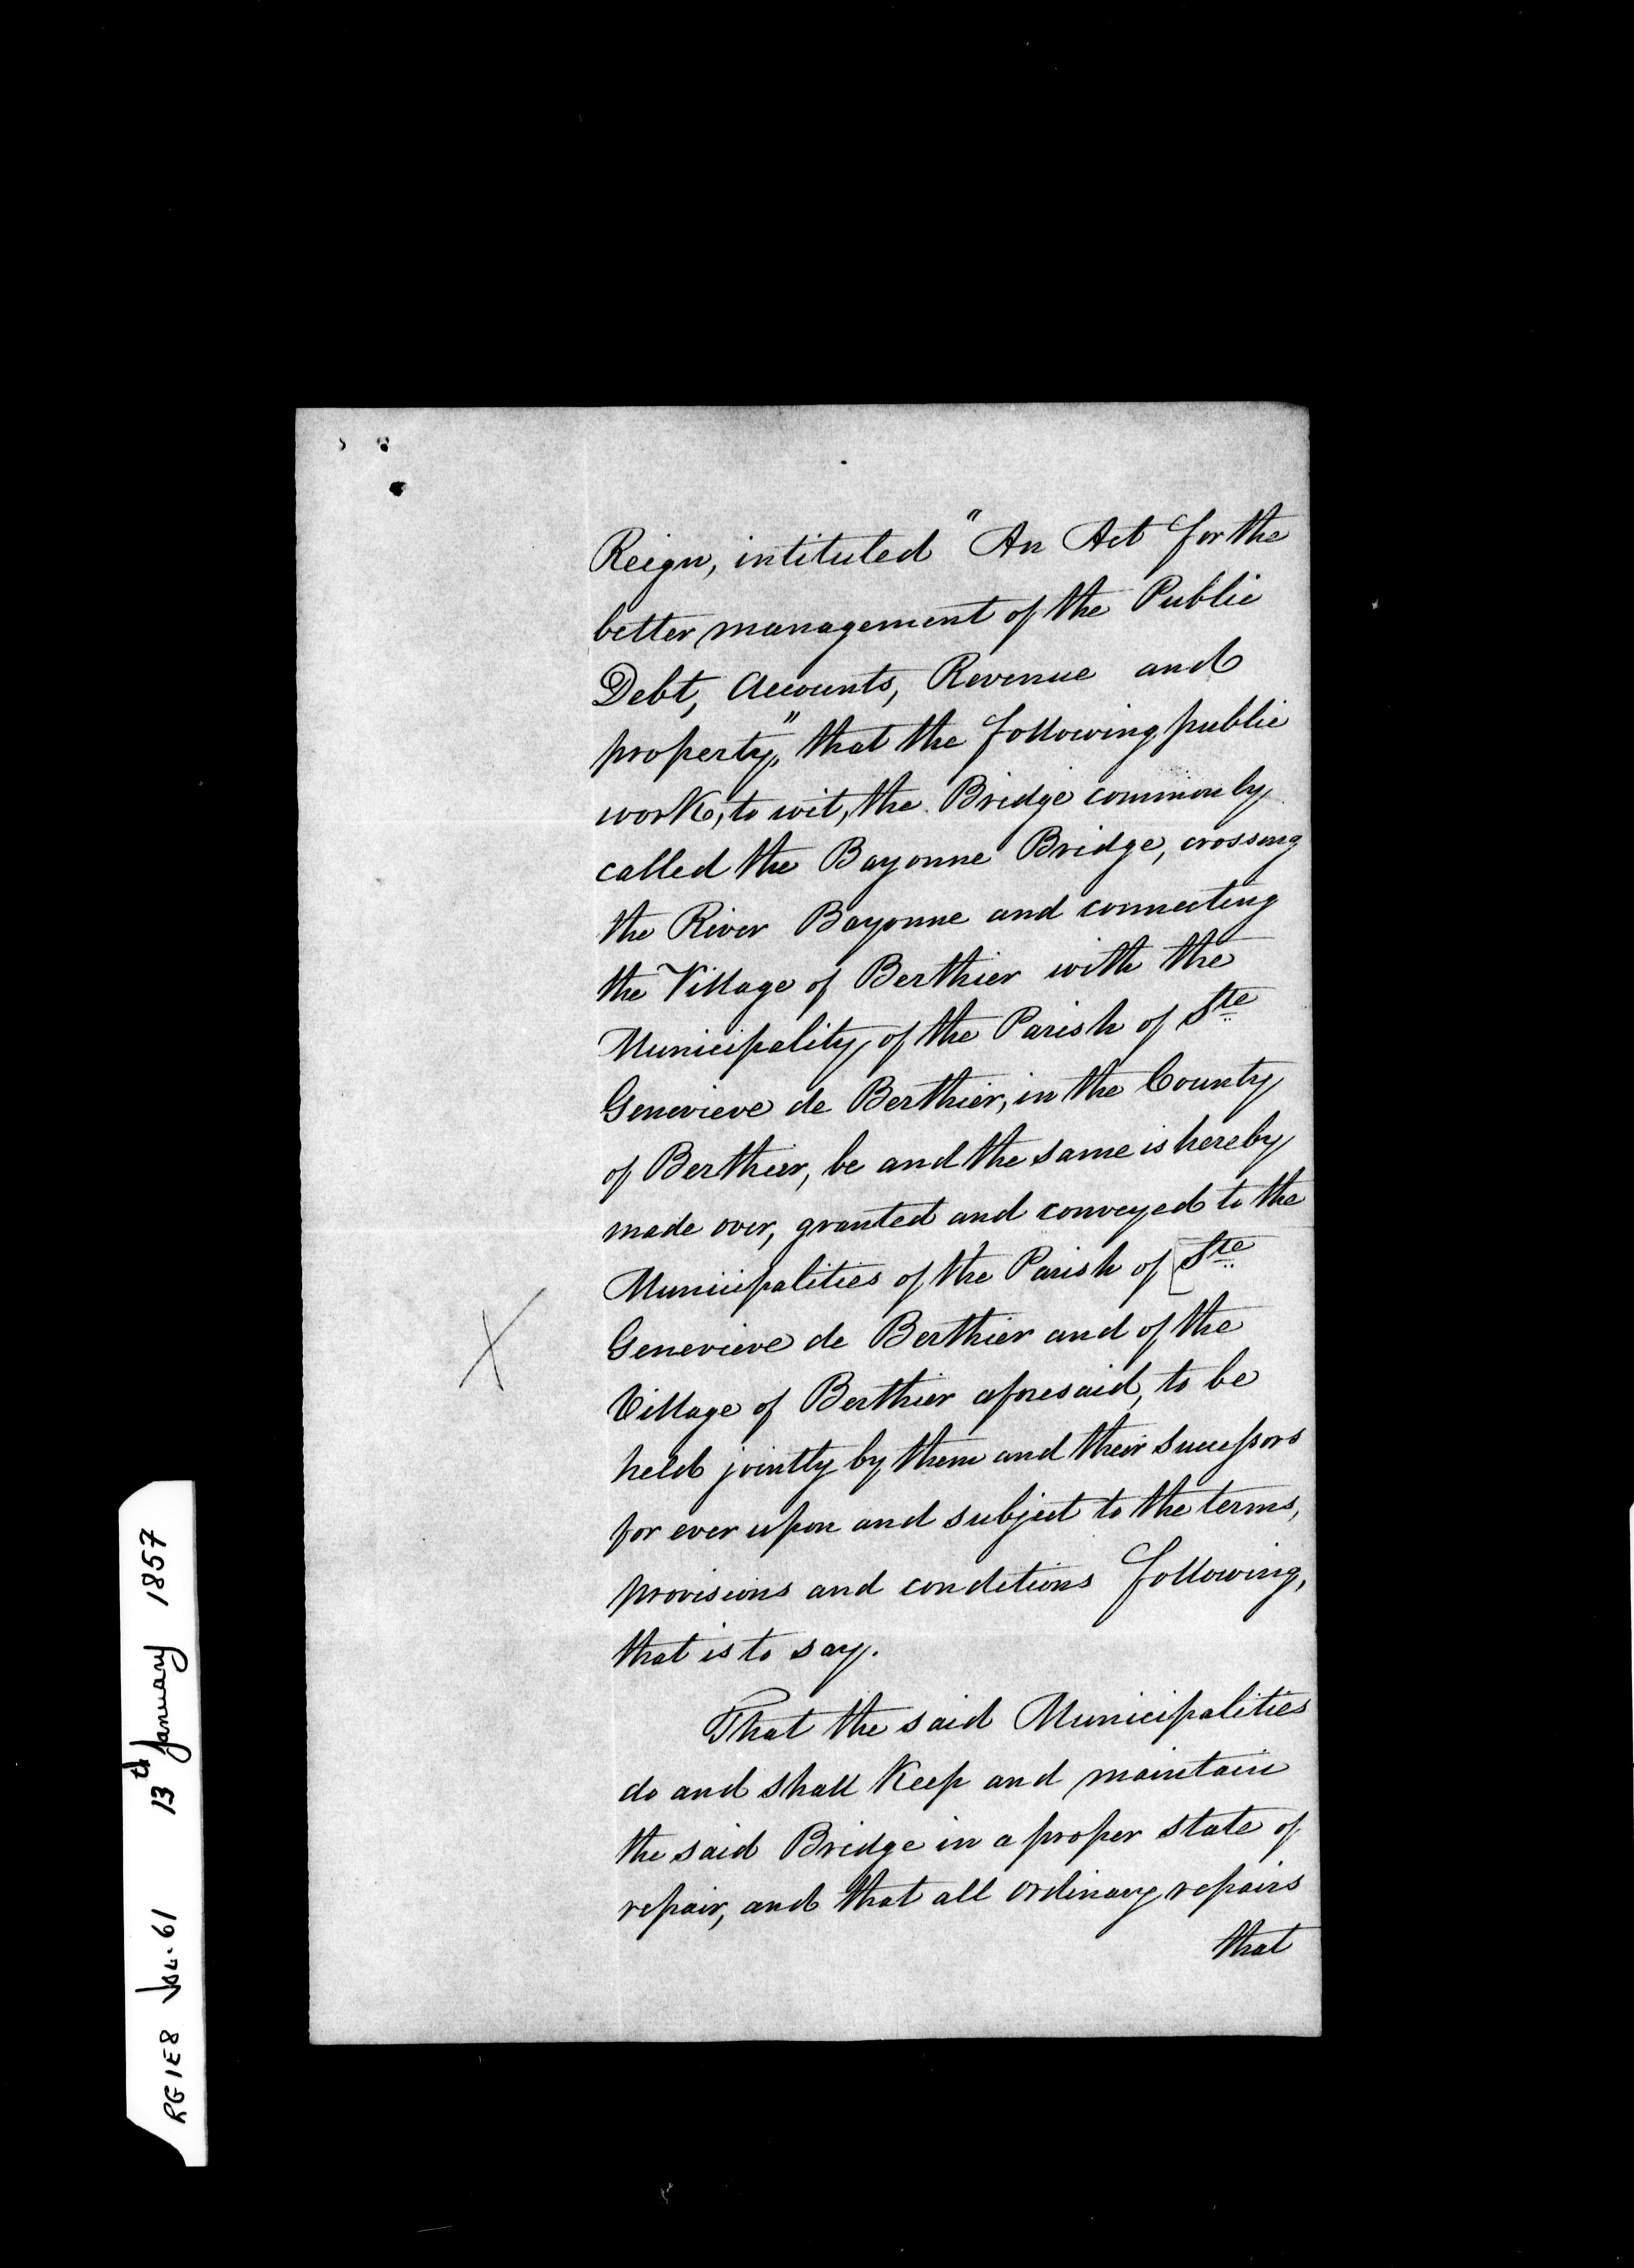 Reign, intituled "An Act for the
better management of the Public
Debt, Accounts, Revenue and
property," that the following public
work, to wit, the Bridge commonly
called the Bayonne Bridge, crossing
the River Bayonne and connecting
the Village of Berthier with the
Municipality of the Parish of Ste
Genevieve de Berthier, in the County
of Berthier, be and the same is hereby
made over, granted and conveyed to the
Municipalities of the Parish of [Ste
Genevieve de Berthier and of the
Village of Berthier aforesaid, to be
held jointly by them and their successors
for ever upon and subject to the terms,
provisions and conditions following,
that is to say.
That the said Municipalities
do and shall Keep and maintain
the said Bridge in a proper state of
repair, and that all ordinary repairs
that
X
RG1E8 Vol. 61 13th January 1857